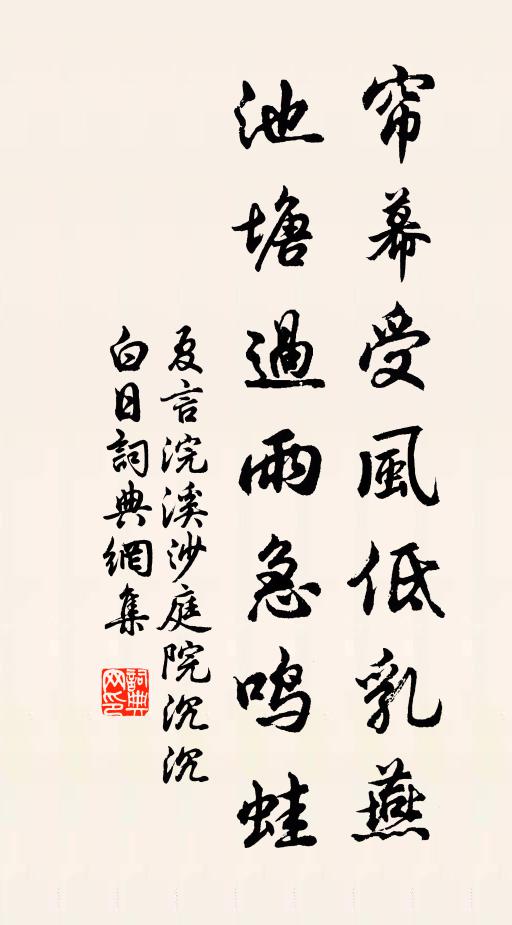 帘幕受風低乳燕
池塘過雨急鳴蛙
夏言浣溪沙庭院沉沉
白日詞典網集
詞典網印